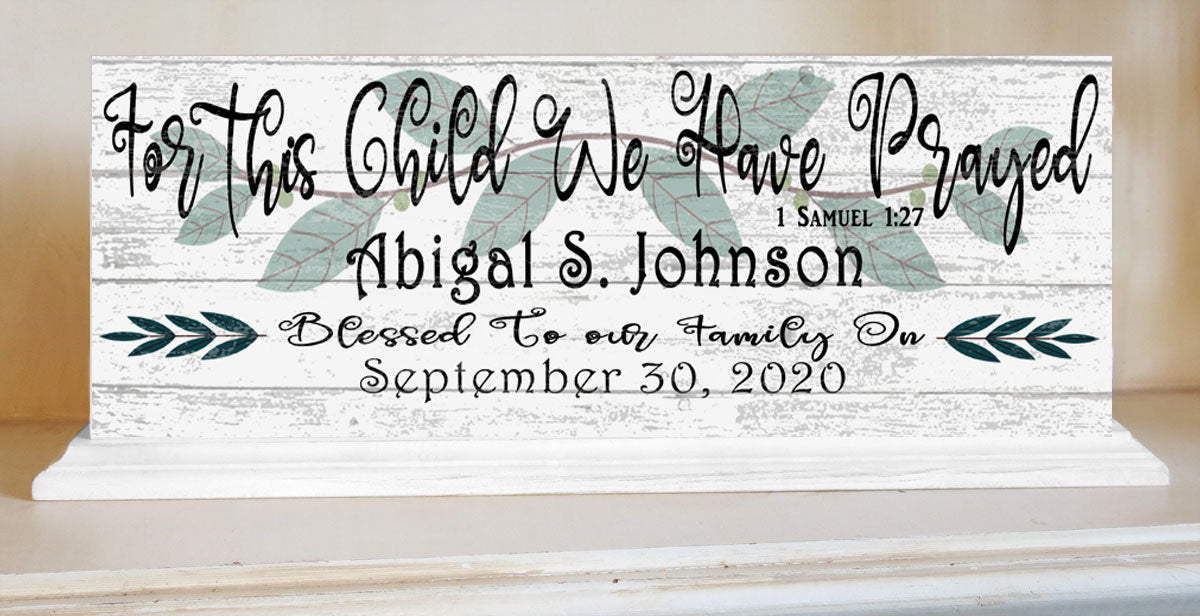 For This Child We Have Prayed
1 Samuel 1:27
Abigal S. Johnson
Blessed To our Family On
September 30, 2020